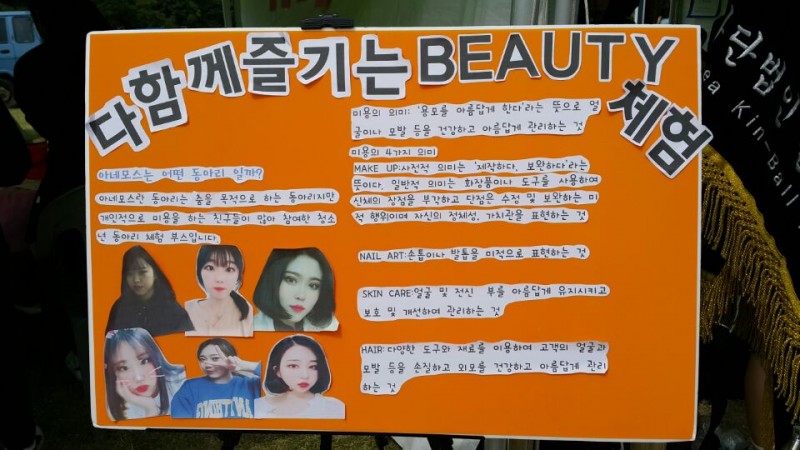 다함께즐기는BEAUTY
체험
아네모스는 어떤 동아리 일까?
아네모스란 동아리는 춤을 목적으로 하는 동아리지만
개인적으로 미용을 하는 친구들이 많아 참여한 청소
년 동아리 체험 부스입니다.
미용의 의미: '용모를 아름답게 한다'라는 뜻으로 얼
굴이나 모발 등을 건강하고 아름답게 관리하는 것
미용의 4가지 의미
MAKE UP:사전적 의미는 '제작하다, 보완하다'라는
뜻이다. 일반적 의미는 화장품이나 도구를 사용하여
신체의 장점을 부각하고 단점은 수정 및 보완하는 미
적 행위이며 자신의 정체성, 가치관을 표현하는 것
NAIL ART:손톱이나 발톱을 미적으로 표현하는 것
SKIN CARE:얼굴 및 전신 부를 아름답게 유지시키고
보호 및 개선하여 관리하는 것
HAIR:다양한 도구와 재료를 이용하여 고객의 얼굴과
모발 등을 손질하고 외모를 건강하고 아름답게 관리
하는 것
사단법인
ea Kin-Ball